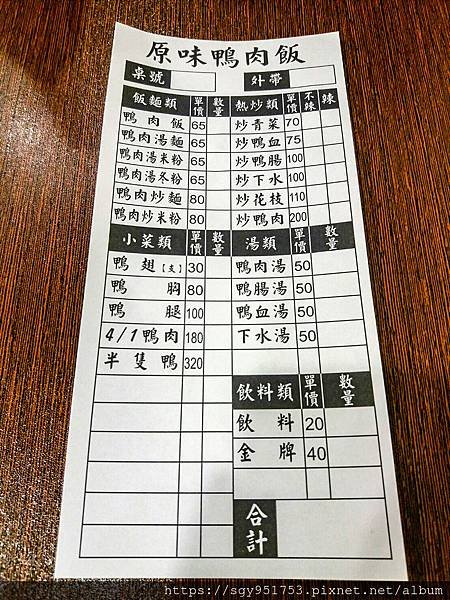 原味鴨肉飯
桌號 外帶
飯麵類 單價 數量
鴨肉飯 65
鴨肉湯麵 65
鴨肉湯米粉 65
鴨肉湯冬粉 65
鴨肉炒麵 80
鴨肉炒米粉 80
小菜類 單價 數量
鴨翅【支】 30
鴨胸 80
鴨腿 100
4/1鴨肉 180
半隻鴨 320
熱炒類 單價 不辣 辣
炒青菜 70
炒鴨血 75
炒鴨腸 100
炒下水 100
炒花枝 110
炒鴨肉 200
湯類 單價 數量
鴨肉湯 50
鴨腸湯 50
鴨血湯 50
下水湯 50
飲料類 單價 數量
飲料 20
金牌 40
合計
https://sgy951753.pixnet.net/album